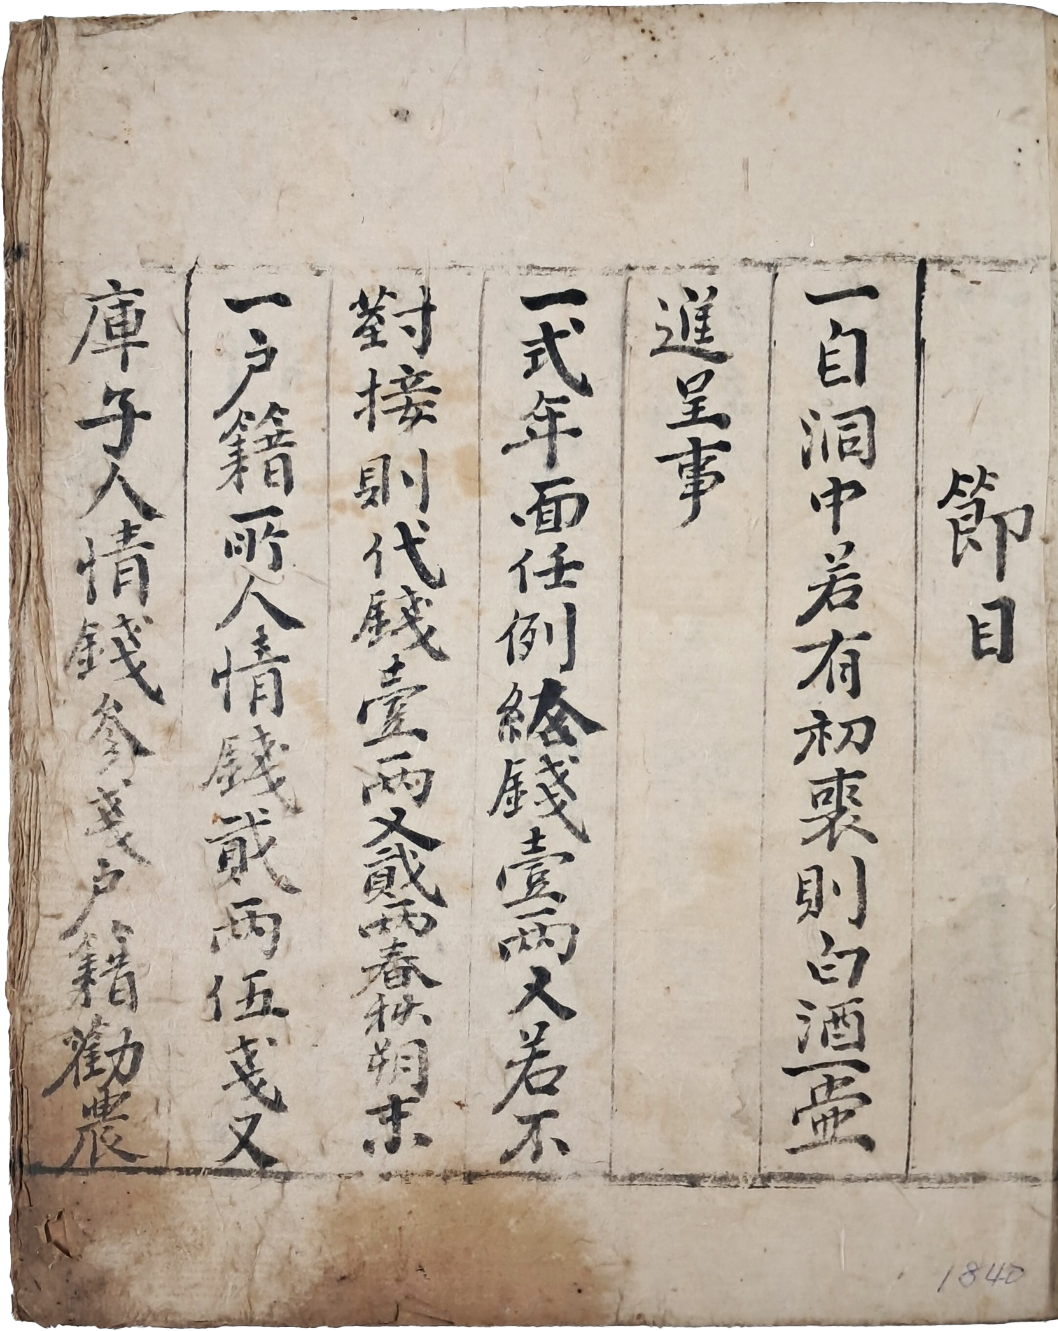 節目
一自洞中若有初喪則白酒一壺
進呈事
一式年面任例給錢壹兩又若不
對接則代錢壹兩又貳兩春秋朔末
一戶籍所人情錢貳兩伍戔又
庫子人情錢參戔戶籍勸農
1840